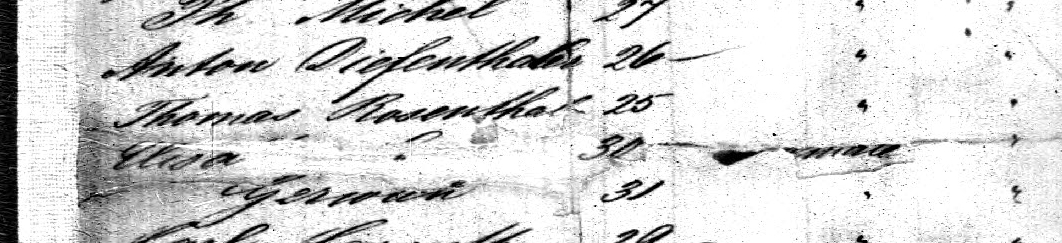 Th Michel 27 " " "
Anton Diefenthaler 26 — " "
Thomas Rosenthal 25 " "
Elisa " 30 "
31 " "